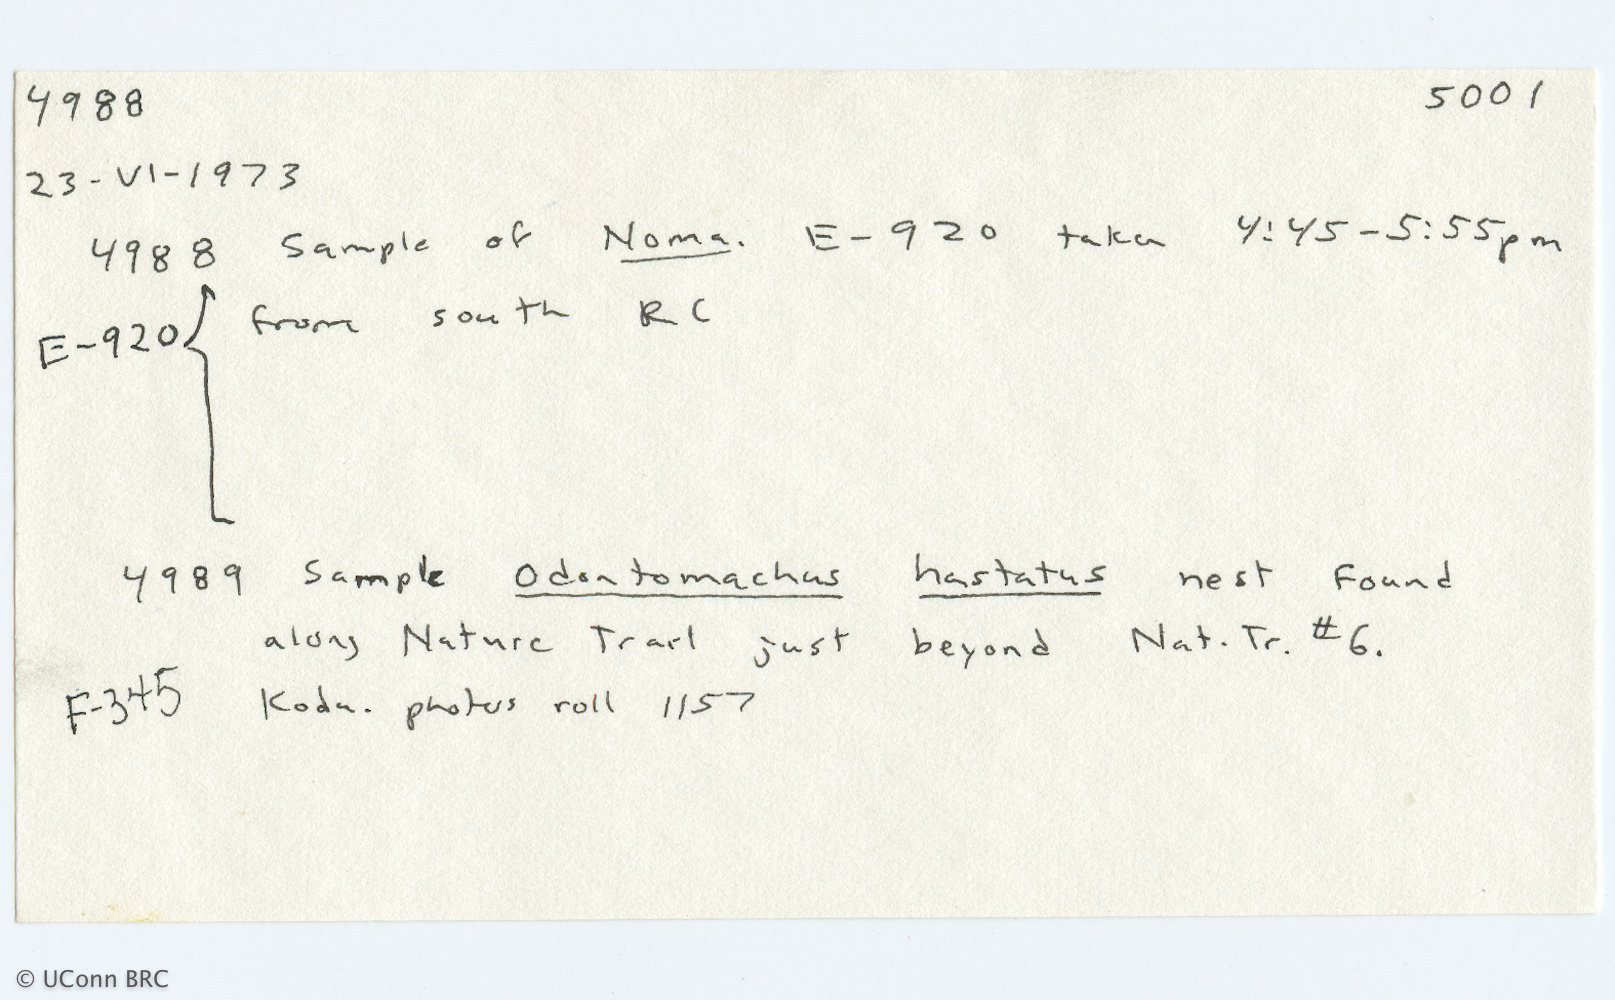 4988 5001
23-VI-1973
4988 Sample of Noma. E-920 taken 4:45-5:55pm
E-920 from south RC
4989 Sample Odontomachus hastatus nest found
along Nature Trail just beyond Nat. Tr. #6.
F-345 Koda. photos roll 1157
© UConn BRC